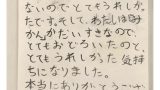 ないのでとてもうれしかっ
たです。そして、わたしは
かんがだいすきなので、
とてもおどろいたので、
とてもうれしかった気持
ちになりました。
本当にありがとうござい